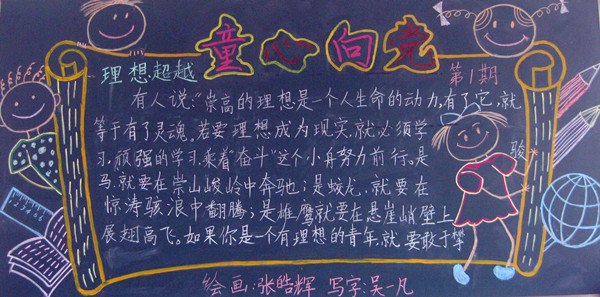 童心向党
理想超越
第1期
有人说:“崇高的理想是一个人生命的动力,有了它,就
等于有了灵魂。若要理想成为现实,就必须学
习,顽强的学习,乘着“奋斗”这个小舟努力前行。是骏
马,就要在崇山峻岭中奔驰;是蛟龙,就要在
惊涛骇浪中翻腾;是雄鹰就要在悬崖峭壁上
展翅高飞。如果你是一个有理想的青年,就要敢于攀
绘画:张皓辉 写字:吴一凡